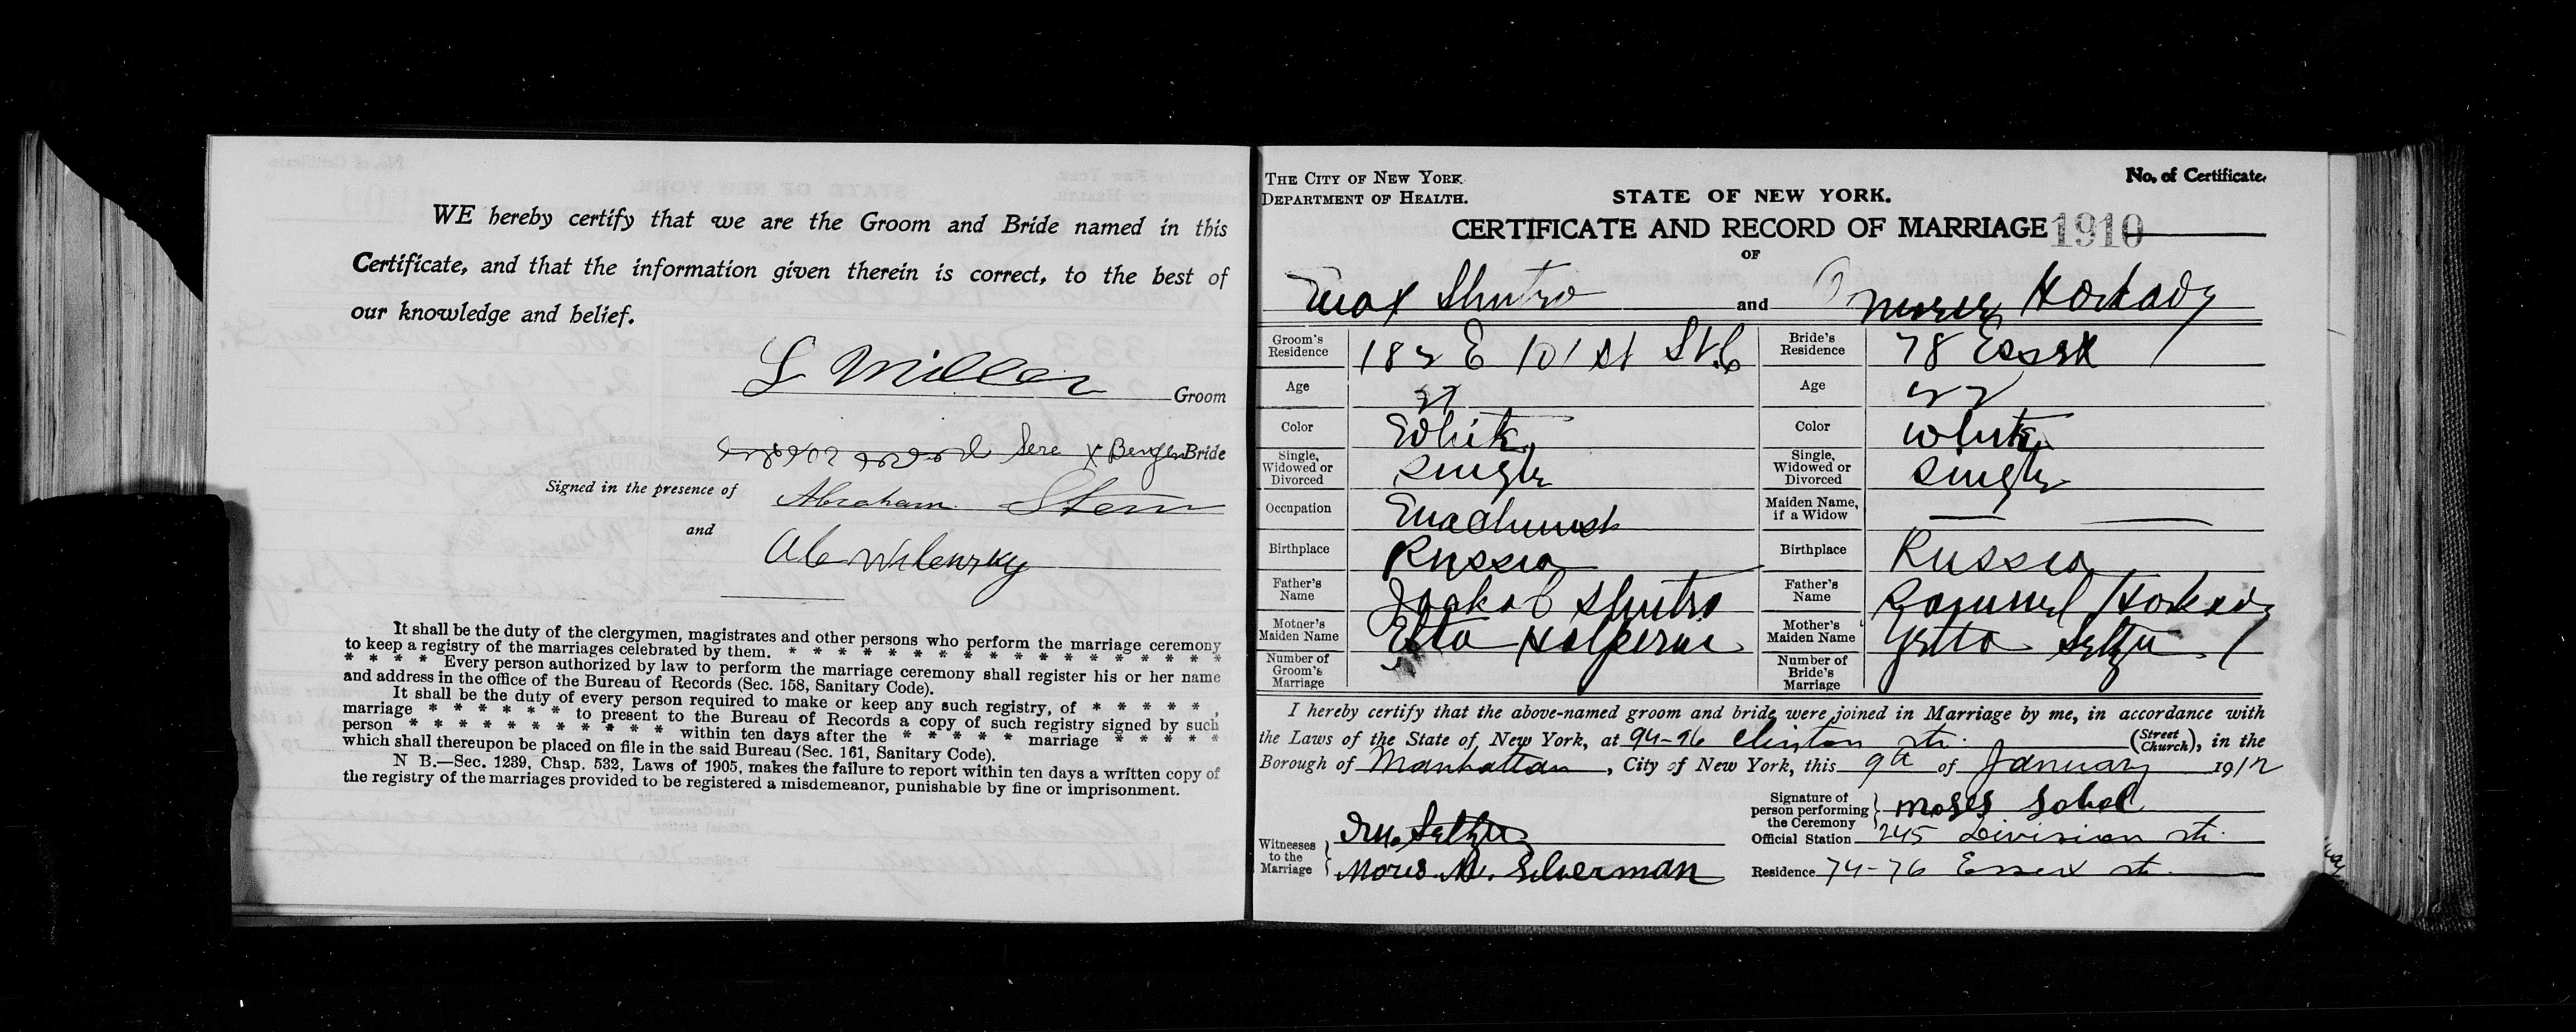 WE hereby certify that we are the Groom and Bride named in this
Certificate, and that the information given therein is correct, to the best of
our knowledge and belief.
L Miller Groom
Sere X Bride
Signed in the presence of Abraham Stern
and
Abe Wilensky
It shall be the duty of the clergymen, magistrates and other persons who perform the marriage ceremony
to keep a registry of the marriages celebrated by them. * * * * * * * * * * * * * * * * * *
* * * * Every person authorized by law to perform the marriage ceremony shall register his or her name
and address in the office of the Bureau of Records (Sec. 158, Sanitary Code).
It shall be the duty of every person required to make or keep any such registry, of * * * * * ,
marriage * * * * * * to present to the Bureau of Records a copy of such registry signed by such
person * * * * * * * * * * * within ten days after the * * * * * marriage * * * * *
which shall thereupon be placed on file in the said Bureau (Sec. 161, Sanitary Code).
N B.—Sec. 1239, Chap. 532, Laws of 1905, makes the failure to report within ten days a written copy of
the registry of the marriages provided to be registered a misdemeanor, punishable by fine or imprisonment.
THE CITY OF NEW YORK
DEPARTMENT OF HEALTH.
No. of Certificate.
STATE OF NEW YORK.
CERTIFICATE AND RECORD OF MARRIAGE 1910
OF
Max Shutro and Horkady
Groom's Residence 182 E 101 st St.
Bride's Residence 78 Essex
Age
Age 22
Color White
Color White
Single, Widowed or Divorced Single
Single, Widowed or Divorced Single
Occupation Machinist
Maiden Name, if a Widow
Birthplace Russia
Birthplace Russia
Father's Name Jackob Shutro
Father's Name Horkady
Mother's Maiden Name Etta Halperin
Mother's Maiden Name Yetta Seltzer
Number of Groom's Marriage
Number of Bride's Marriage
I hereby certify that the above-named groom and bride were joined in Marriage by me, in accordance with
the Laws of the State of New York, at 94-96 Clinton str. (Street Church), in the
Borough of Manhattan, City of New York, this 9th of January 1912
Signature of person performing the Ceremony Moses Sobel
Official Station 245 Division str.
Residence 74-76 Essex str.
Witnesses to the Marriage
Seltzer
Moris M. Silverman